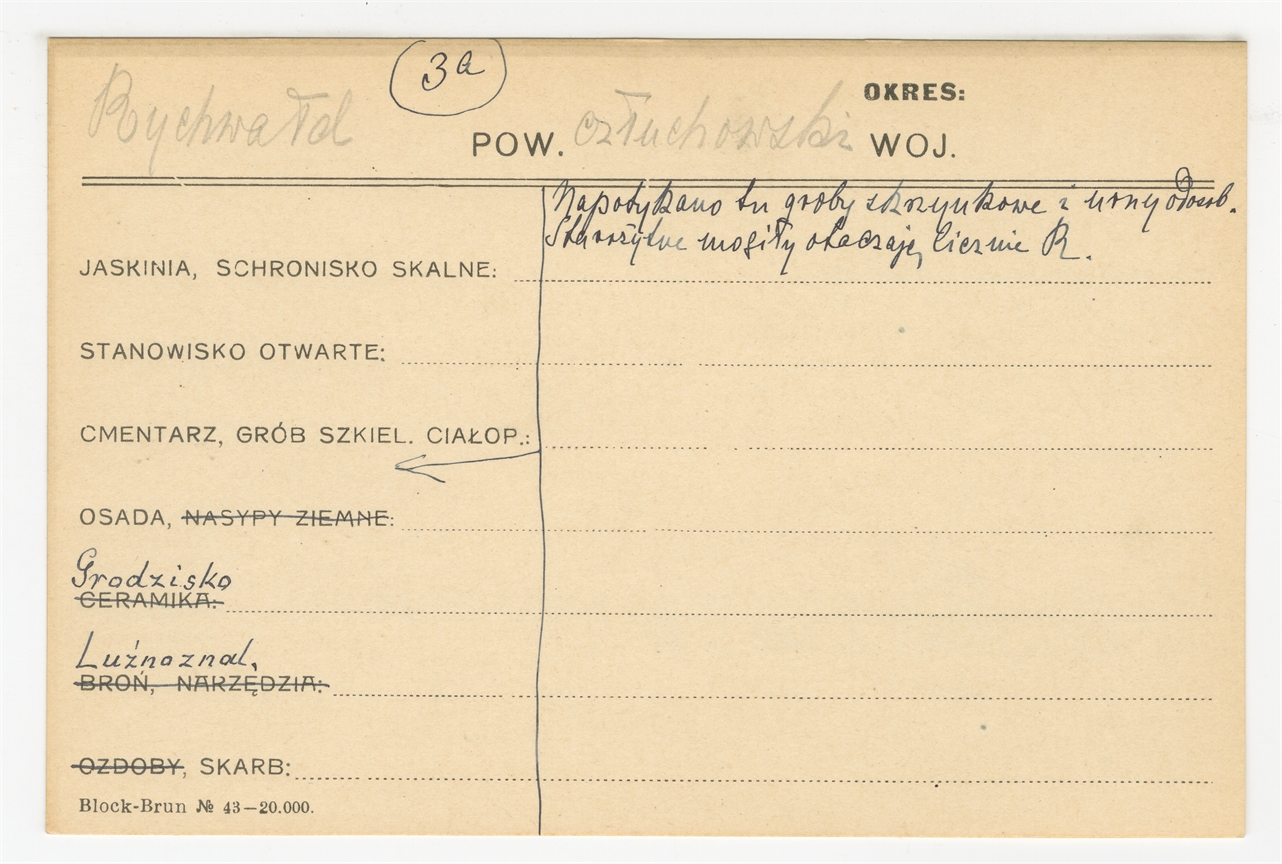 3a
Rychwałd
OKRES:
POW. człuchowski WOJ.
Napotykano tu groby skrzynkowe i urny odosob.
Starożytne mogiły otaczają licznie R.
JASKINIA, SCHRONISKO SKALNE:
STANOWISKO OTWARTE:
CMENTARZ, GRÓB SZKIEL. CIAŁOP.:
OSADA, NASYPY ZIEMNE:
Grodzisko
CERAMIKA:
Luźnoznal.
BROŃ, NARZĘDZIA:
OZDOBY, SKARB:
Block-Brun № 43—20.000.